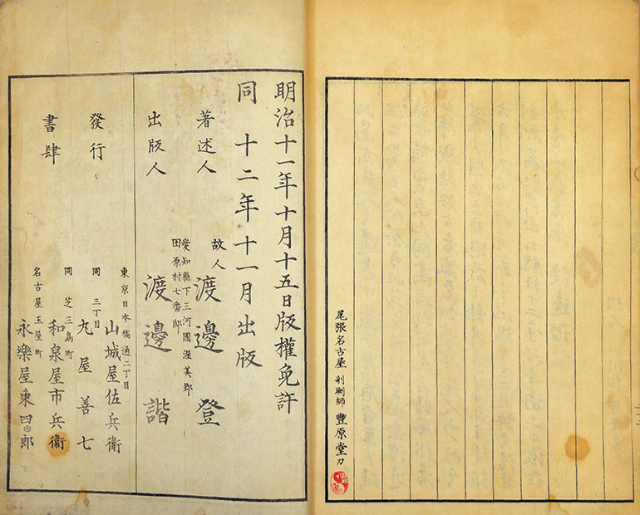 尾張名古屋 剞劂師 豐原堂刀
明治十一年十月十五日版權免許
同 十二年十一月出版
著述人 故人 渡邊登
愛知縣下三河國渥美郡
田原村七番邸
出版人 渡邊諧
發行
書肆
東京日本橋通二丁目
山城屋佐兵衞
同 三丁目
丸屋善七
同 芝三島町
和泉屋市兵衞
名古屋玉屋町
永樂屋東四郎